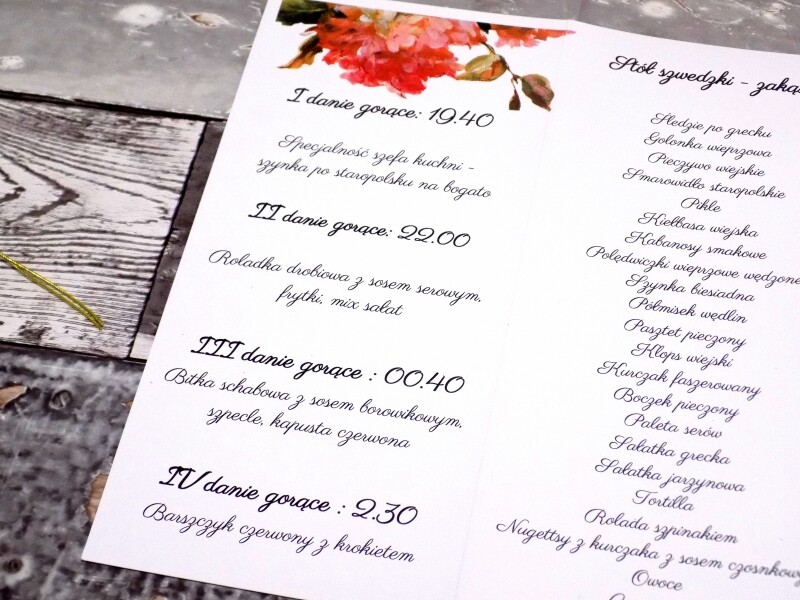 I danie gorące: 19.40
Specjalność szefa kuchni -
szynka po staropolsku na bogato
II danie gorące: 22.00
Roladka drobiowa z sosem serowym,
frytki, mix sałat
III danie gorące : 00.40
Bitka schabowa z sosem borowikowym,
szpecle, kapusta czerwona
IV danie gorące : 2.30
Barszczyk czerwony z krokietem
Stół szwedzki - zaką
Śledzie po grecku
Golonka wieprzowa
Pieczywo wiejskie
Smarowidło staropolskie
Pikle
Kiełbasa wiejska
Kabanosy smakowe
Polędwiczki wieprzowe wędzone
Szynka biesiadna
Półmisek wędlin
Pasztet pieczony
Klops wiejski
Kurczak faszerowany
Boczek pieczony
Paleta serów
Sałatka grecka
Sałatka jarzynowa
Tortilla
Rolada szpinakiem
Nugettsy z kurczaka z sosem czosnkowy
Owoce